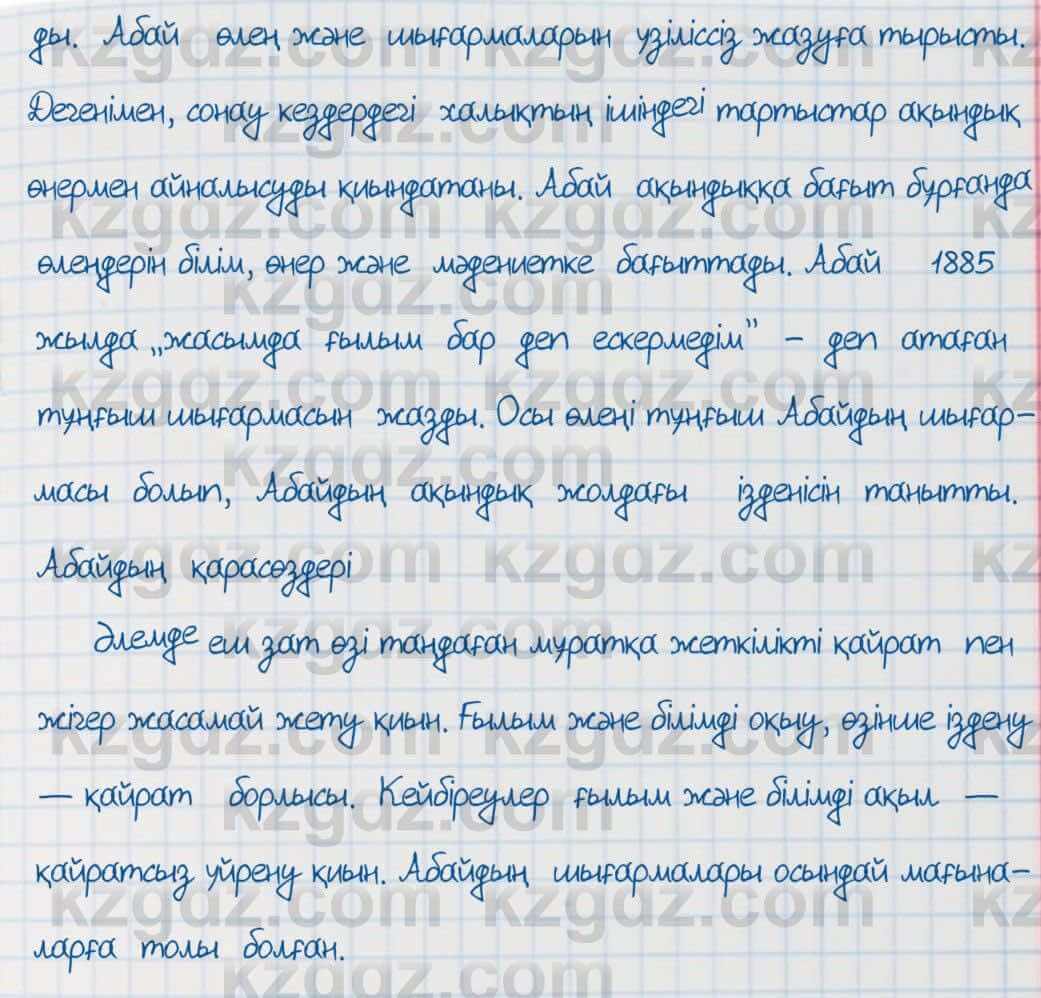 ды. Абай өлең және шығармаларын үзіліссіз жазуға тырысты.
Дегенімен, сонау кездердегі халықтың ішіндегі тартыстар ақындық
өнермен айналысуды қиындатаны. Абай ақындыққа бағыт бұрғанда
өлеңдерін білім, өнер және мәдениетке бағыттады. Абай 1885
жылда „жасымда ғылым бар деп ескермедім" – деп атаған
тұңғыш шығармасын жазды. Осы өлеңі тұңғыш Абайдың шығар-
масы болып, Абайдың ақындық жолдағы ізденісін танытты.
Абайдың қарасөздері
Әлемде еш зат өзі таңдаған мұратқа жеткілікті қайрат пен
жігер жасамай жету қиын. Ғылым және білімді оқыу, өзінше іздену
— қайрат борлысы. Кейбіреулер ғылым және білімді ақыл —
қайратсыз үйрену қиын. Абайдың шығармалары осындай мағына-
ларға толы болған.
kzgdz.com